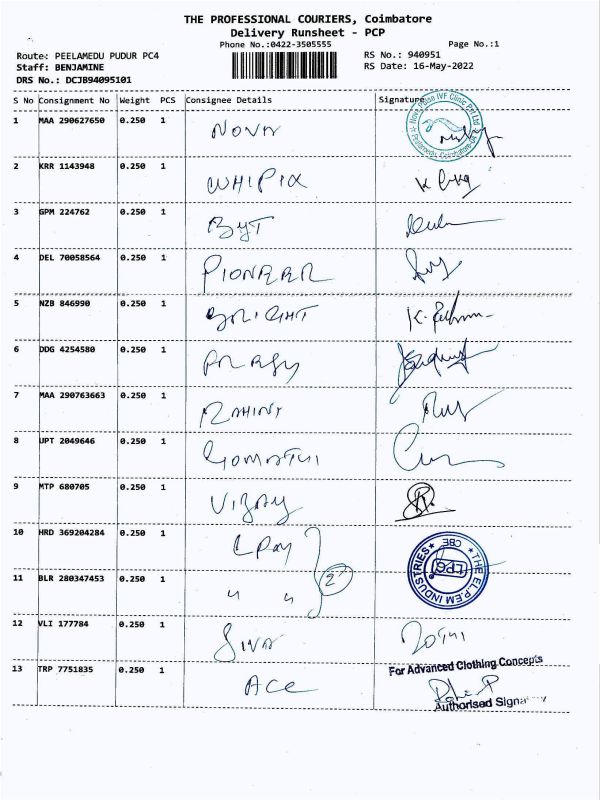 THE PROFESSIONAL COURIERS, Coimbatore
Delivery Runsheet - PCP
Phone No.:0422-3505555 Page No.:1
Route: PEELAMEDU PUDUR PC4 RS No.: 940951
Staff: BENJAMINE RS Date: 16-May-2022
DRS No.: DCJB94095101
S No Consignment No Weight PCS Consignee Details Signature
1 MAA 290627650 0.250 1 NOVA
2 KRR 1143948 0.250 1 WHIPIX
3 GPM 224762 0.250 1
4 DEL 70058564 0.250 1 PIONEER
5 NZB 846990 0.250 1 BRIGHT
6 DDG 4254580 0.250 1
7 MAA 290763663 0.250 1
8 UPT 2049646 0.250 1 GOMATHI
9 MTP 680705 0.250 1 VIJAY
10 HRD 369204284 0.250 1
THE EL.P.EM INDUSTRIES CBE
11 BLR 280347453 0.250 1 " " 2
12 VLI 177784 0.250 1 SIVA
13 TRP 7751835 0.250 1 ACE
For Advanced Clothing Concepts
Authorised